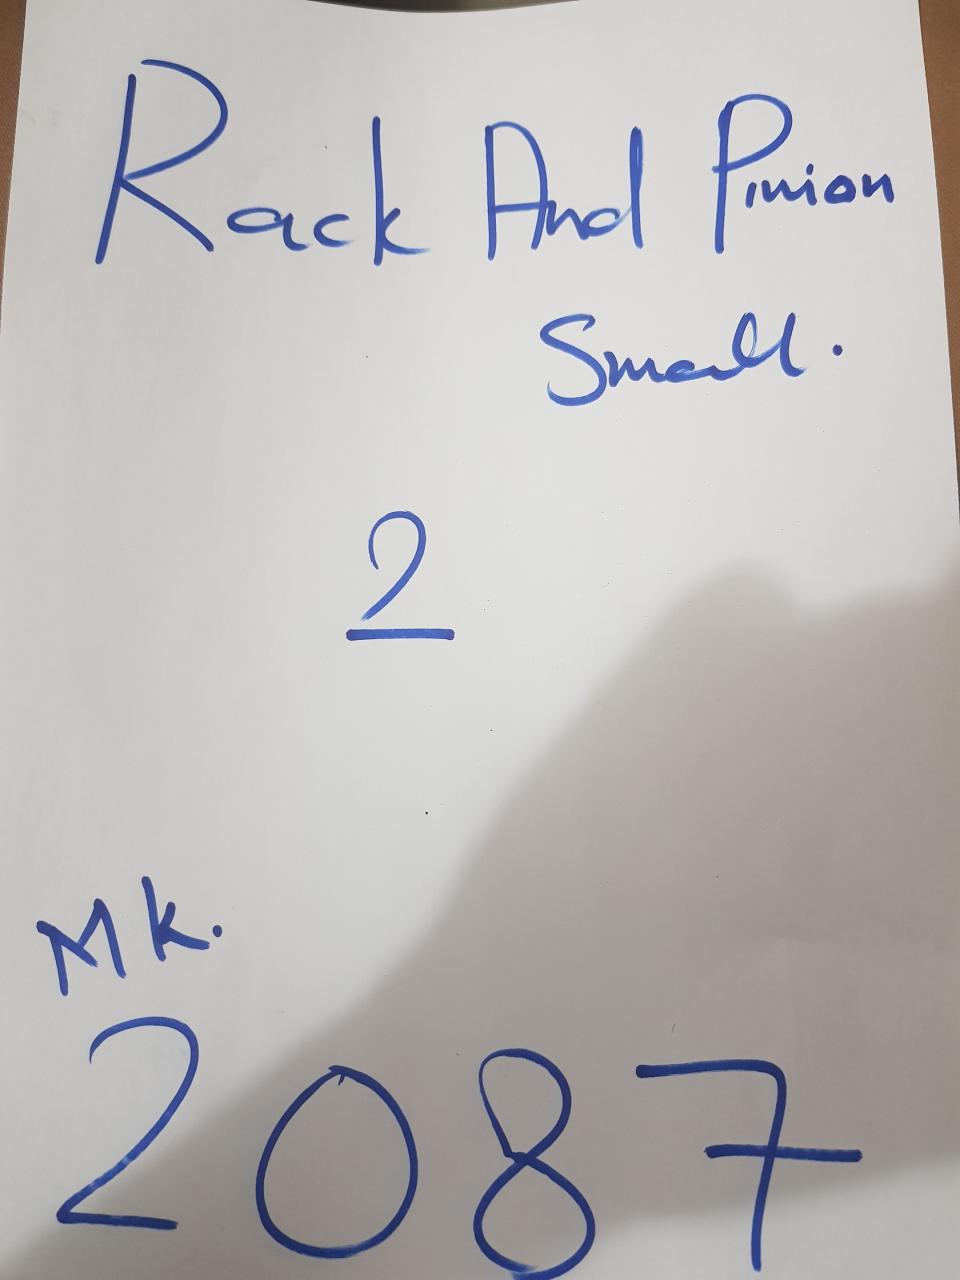 Rack And Pinion
Small.
2
Mk.
2087